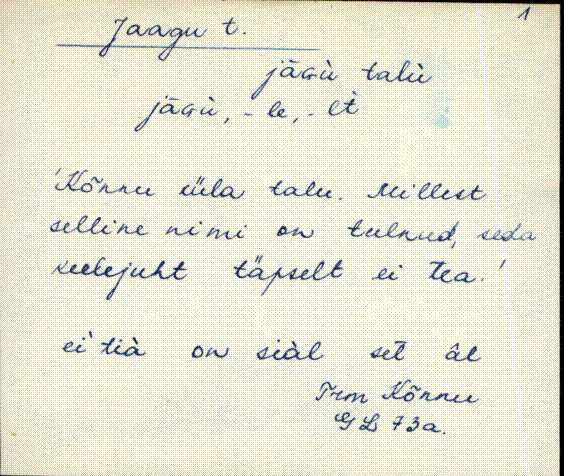 1
Jaagu t.
jäGù talù
jäGù, -le, -lt̀
'Kõnnu küla talu. Millest
selline nimi on tulnud, seda
keelejuht täpselt ei tea.'
ei tià on siàl set âl
Trm Kõnnu
GL 73a.